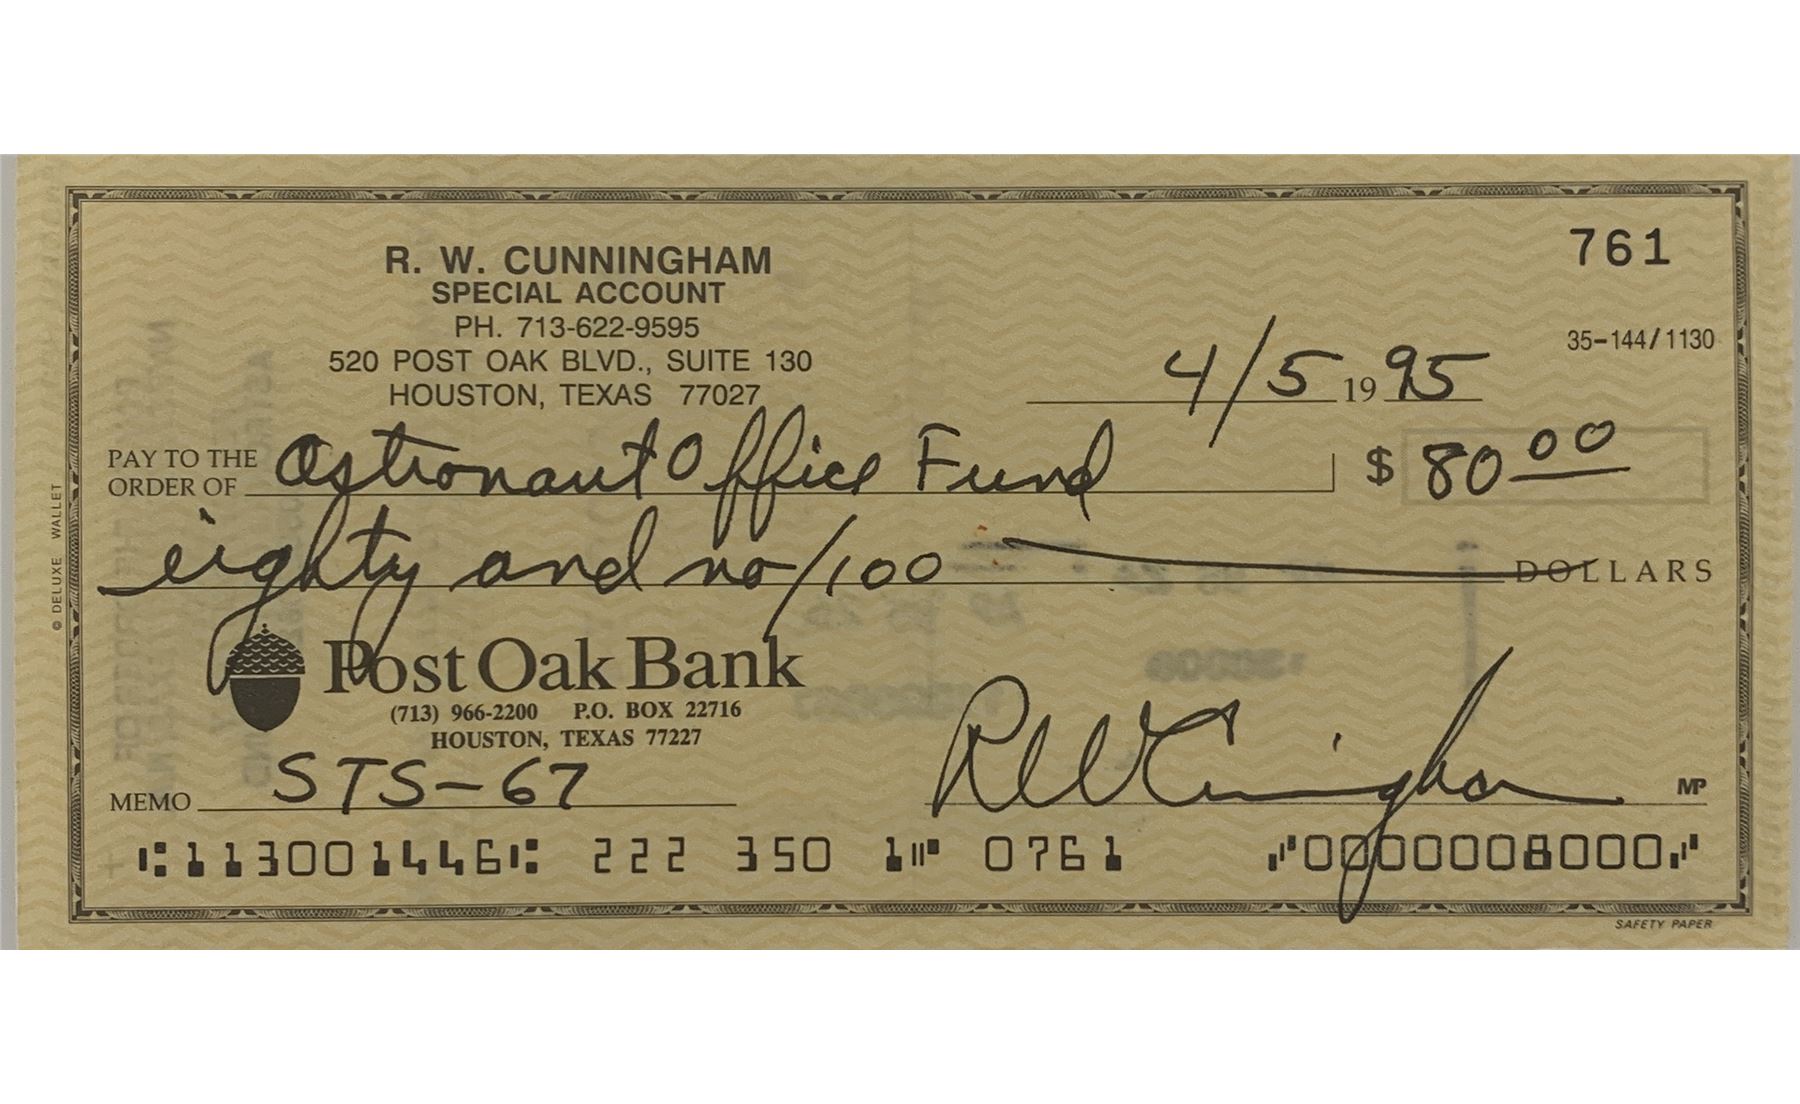 R. W. CUNNINGHAM
SPECIAL ACCOUNT
PH. 713-622-9595
520 POST OAK BLVD., SUITE 130
HOUSTON, TEXAS 77027
761
35-144/1130
4/5 19 95
PAY TO THE ORDER OF Astronaut Office Fund $ 80 00
eighty and no/100 DOLLARS
© DELUXE WALLET
Post Oak Bank
(713) 966-2200 P.O. BOX 22716
HOUSTON, TEXAS 77227
MEMO STS-67
RW Cunningham MP
⑆113001446⑆ 222 350 1⑈ 0761 ⑈0000008000⑈
SAFETY PAPER